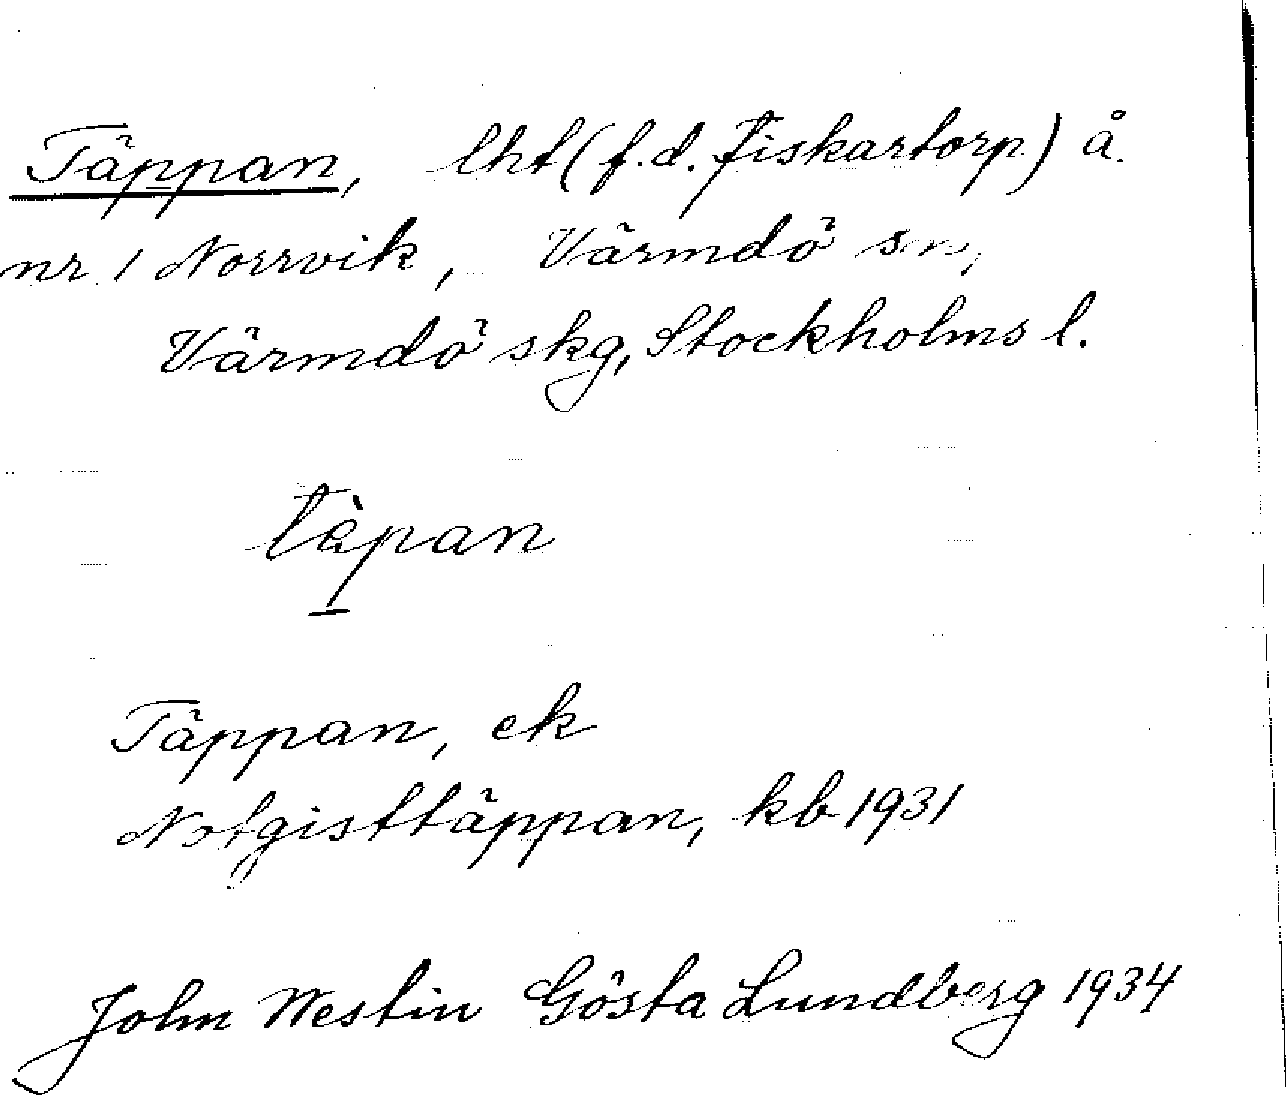 Täppan, lht (f.d. fiskartorp) å
nr 1 Norrvik, Värmdö sn,
Värmdö skg, Stockholms l.
tàpan
Täppan, ek
Notgisttäppan, kb 1931
John Westin Gösta Lundberg 1934